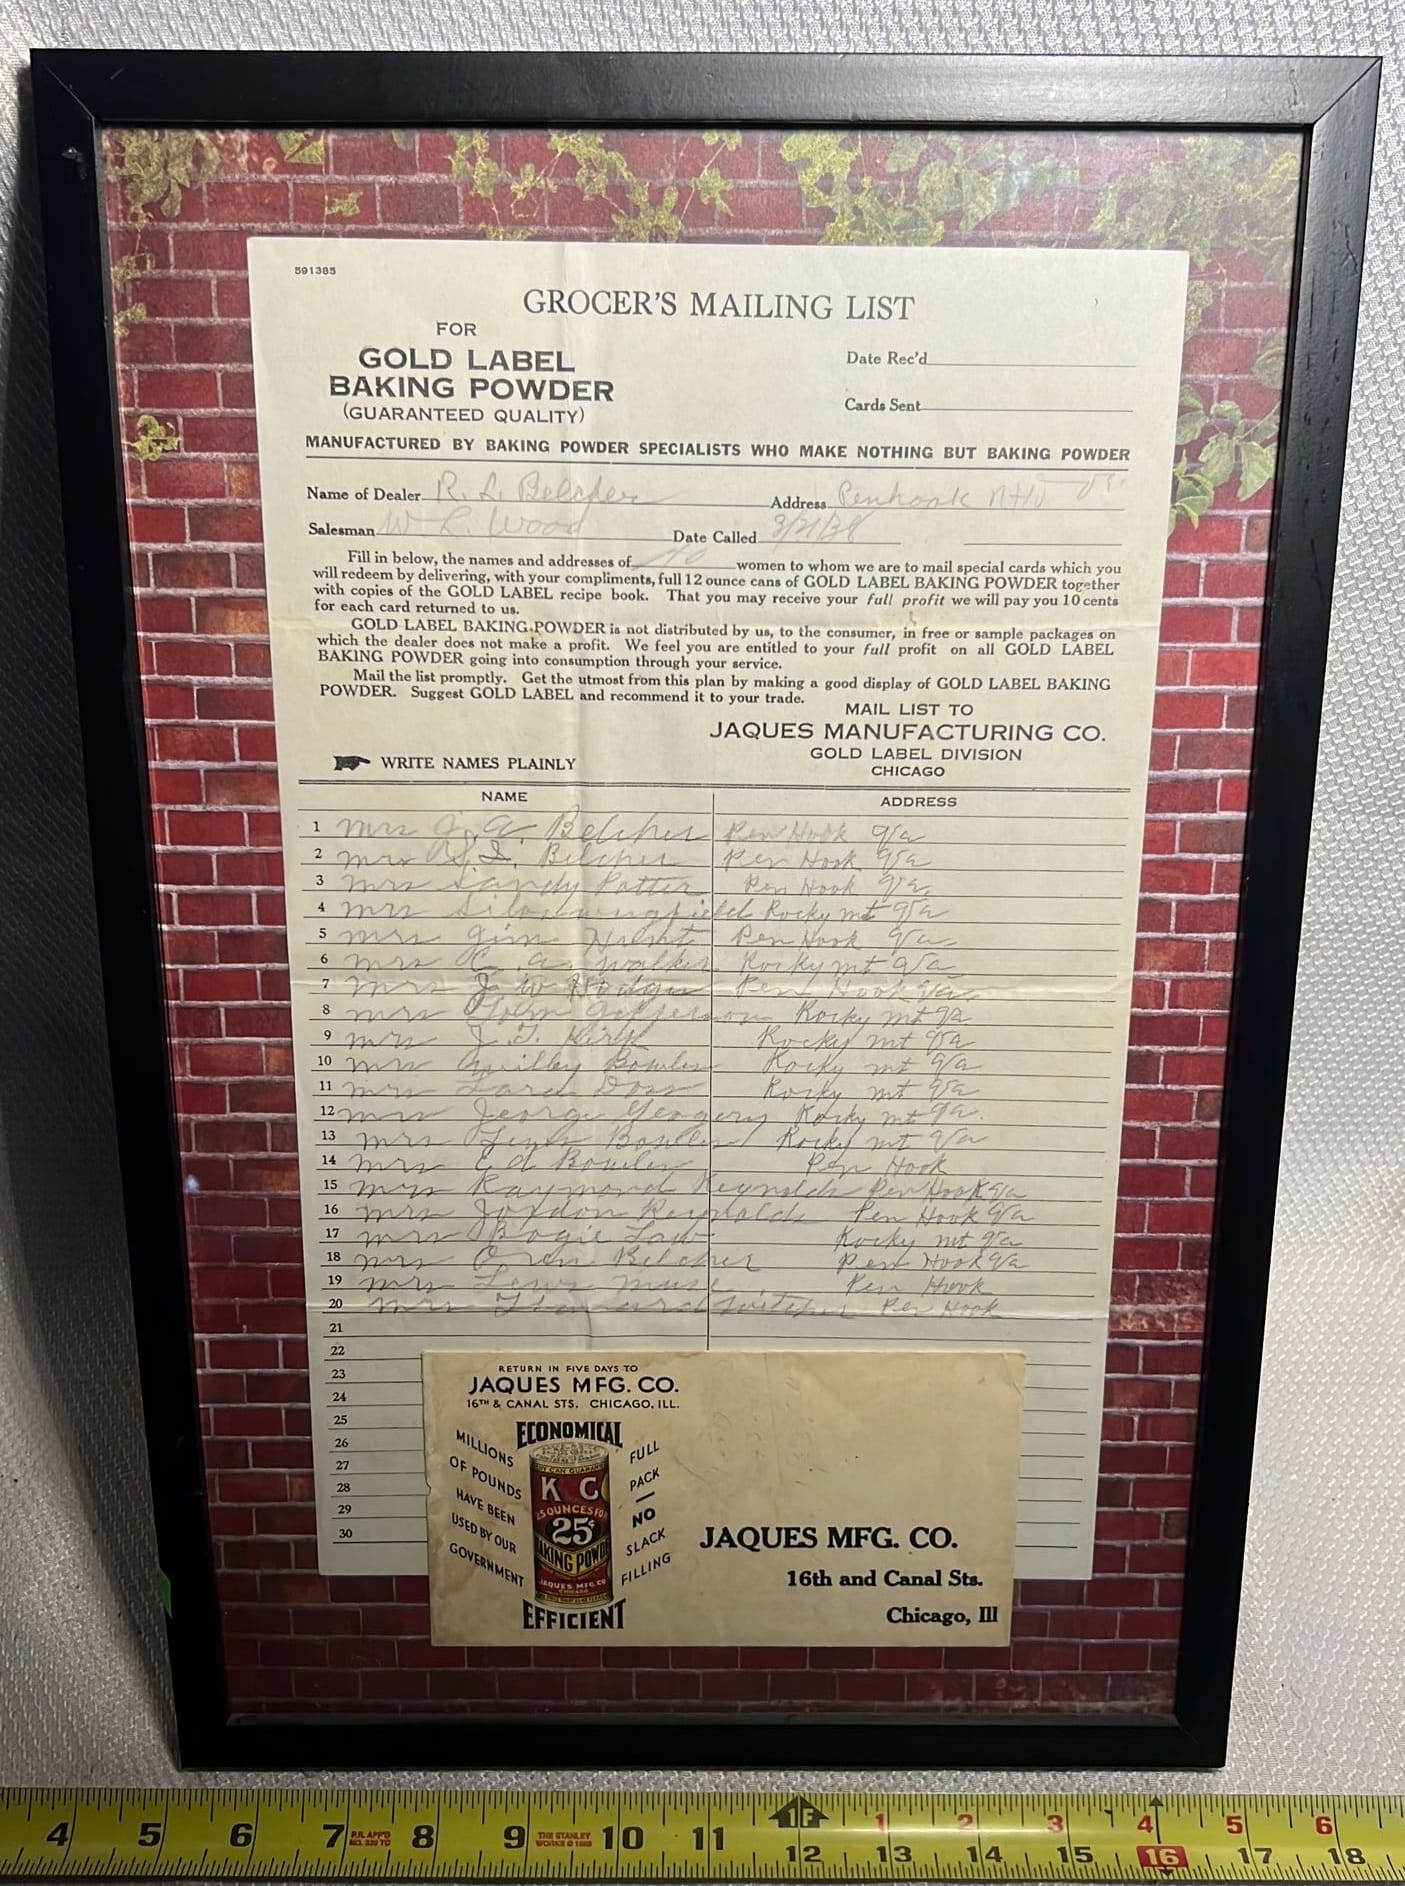 591385
GROCER'S MAILING LIST
FOR
GOLD LABEL
BAKING POWDER
(GUARANTEED QUALITY)
Date Rec'd
Cards Sent
MANUFACTURED BY BAKING POWDER SPECIALISTS WHO MAKE NOTHING BUT BAKING POWDER
Name of Dealer R. L. Belcher Address Penhook
Salesman W L. Wood Date Called 3/21/38
Fill in below, the names and addresses of women to whom we are to mail special cards which you
will redeem by delivering, with your compliments, full 12 ounce cans of GOLD LABEL BAKING POWDER together
with copies of the GOLD LABEL recipe book. That you may receive your full profit we will pay you 10 cents
for each card returned to us.
GOLD LABEL BAKING POWDER is not distributed by us, to the consumer, in free or sample packages on
which the dealer does not make a profit. We feel you are entitled to your full profit on all GOLD LABEL
BAKING POWDER going into consumption through your service.
Mail the list promptly. Get the utmost from this plan by making a good display of GOLD LABEL BAKING
POWDER. Suggest GOLD LABEL and recommend it to your trade.
MAIL LIST TO
JAQUES MANUFACTURING CO.
GOLD LABEL DIVISION
CHICAGO
WRITE NAMES PLAINLY
NAME ADDRESS
1 Mrs J. A. Belcher Pen Hook Va
2 Mrs Belcher Pen Hook Va
3 Mrs Sandy Potter Pen Hook Va.
4 Mrs Rocky mt Va
5 Mrs Jim Hunt Pen Hook Va
6 Mrs C. A. Walker Rocky mt Va
7 Mrs J W Hodges Pen Hook Va
8 Mrs John Rocky mt Va
9 Mrs J. T. Kirk Rocky mt Va
10 Mrs Bowles Rocky mt Va
11 Mrs Doss Rocky mt Va
12 Mrs George Rocky mt Va.
13 Mrs Bowles Rocky mt Va
14 Mrs Ed Bowles Pen Hook
15 Mrs Raymond Reynolds Pen Hook Va
16 Mrs Jordon Reynolds Pen Hook Va
17 Mrs Bogie Law Rocky mt Va
18 Mrs Oren Belcher Pen Hook Va
19 Mrs Lewis Muse Pen Hook
20 Mrs Pen Hook
21
22
23
24
25
26
27
28
29
30
RETURN IN FIVE DAYS TO
JAQUES MFG. CO.
16TH & CANAL STS. CHICAGO, ILL.
MILLIONS
OF POUNDS
HAVE BEEN
USED BY OUR
GOVERNMENT
ECONOMICAL
K C
25 OUNCES FOR
25¢
BAKING POWD
JAQUES MFG. CO
CHICAGO
EFFICIENT
FULL
PACK
—
NO
SLACK
FILLING
JAQUES MFG. CO.
16th and Canal Sts.
Chicago, Ill
1F 1 2 3 4 5 6
4 5 6 7 P.R. APP'D NO. 339 TC 8 9 THE STANLEY WORKS © 1989 10 11 12 13 14 15 16 17 18